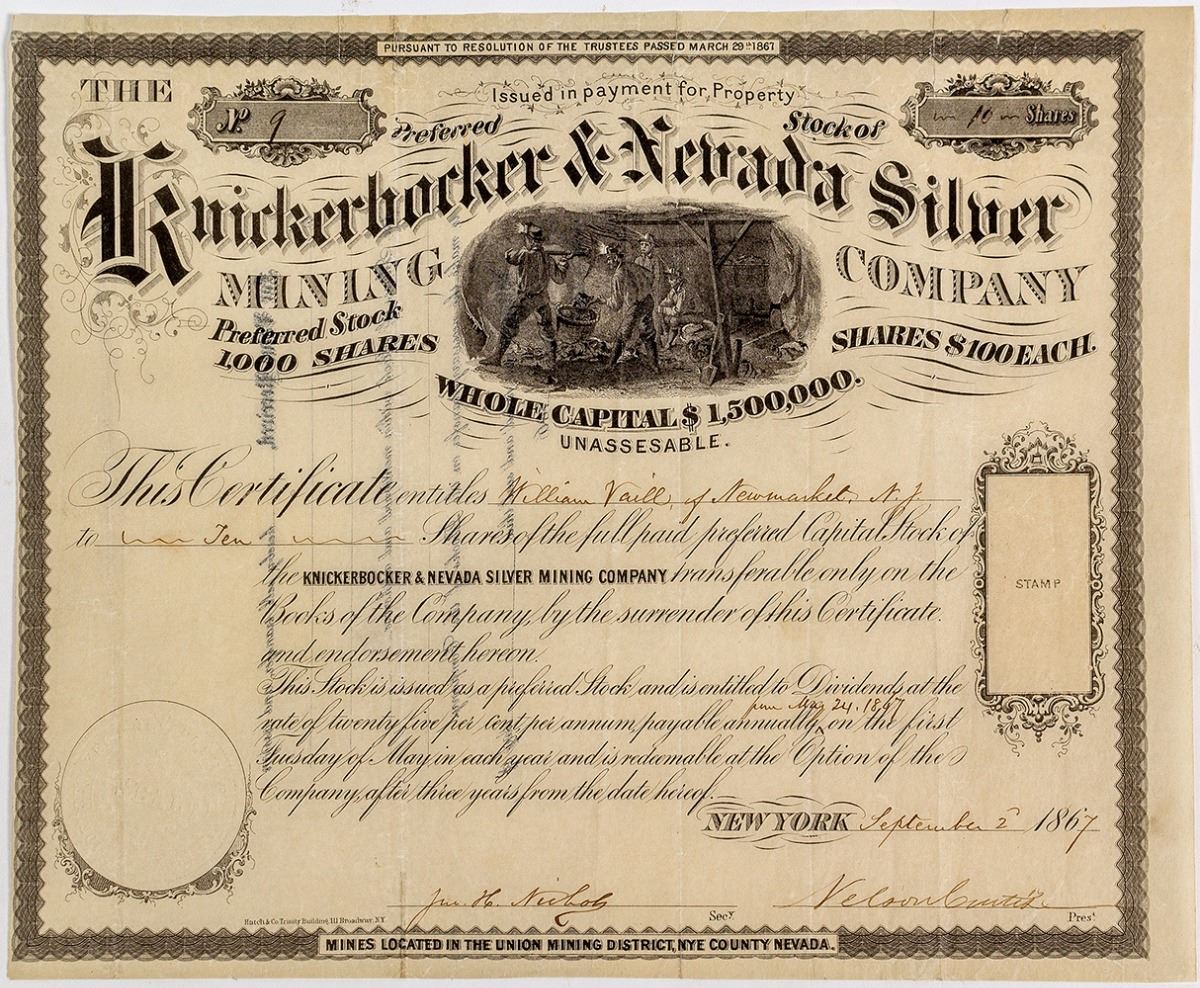 PURSUANT TO RESOLUTION OF THE TRUSTEES PASSED MARCH 29th 1867
THE
No 9
Issued in payment for Property
10 Shares
Preferred Stock of
Knickerbocker & Nevada Silver
MINING COMPANY
Preferred Stock
1,000 SHARES
SHARES $100 EACH.
WHOLE CAPITAL $1,500,000.
UNASSESABLE.
This Certificate entitles William Vaill, of Newmarket, N.J.
to Ten Shares of the full paid preferred Capital Stock of
the KNICKERBOCKER & NEVADA SILVER MINING COMPANY transferable only on the
Books of the Company, by the surrender of this Certificate.
and endorsement hereon.
This Stock is issued as a preferred Stock and is entitled to Dividends, at the
from May 24, 1867
rate of twenty five per cent, per annum, payable annually, on the first
Tuesday of May in each year and is redeemable at the Option of the
Company, after three years from the date hereof.
STAMP
NEW YORK September 2d 1867
Jno. H. Nichols Secy.
Nelson Curtis Prest.
Hatch & Co. Trinity Building, 111 Broadway, N.Y.
MINES LOCATED IN THE UNION MINING DISTRICT, NYE COUNTY NEVADA.